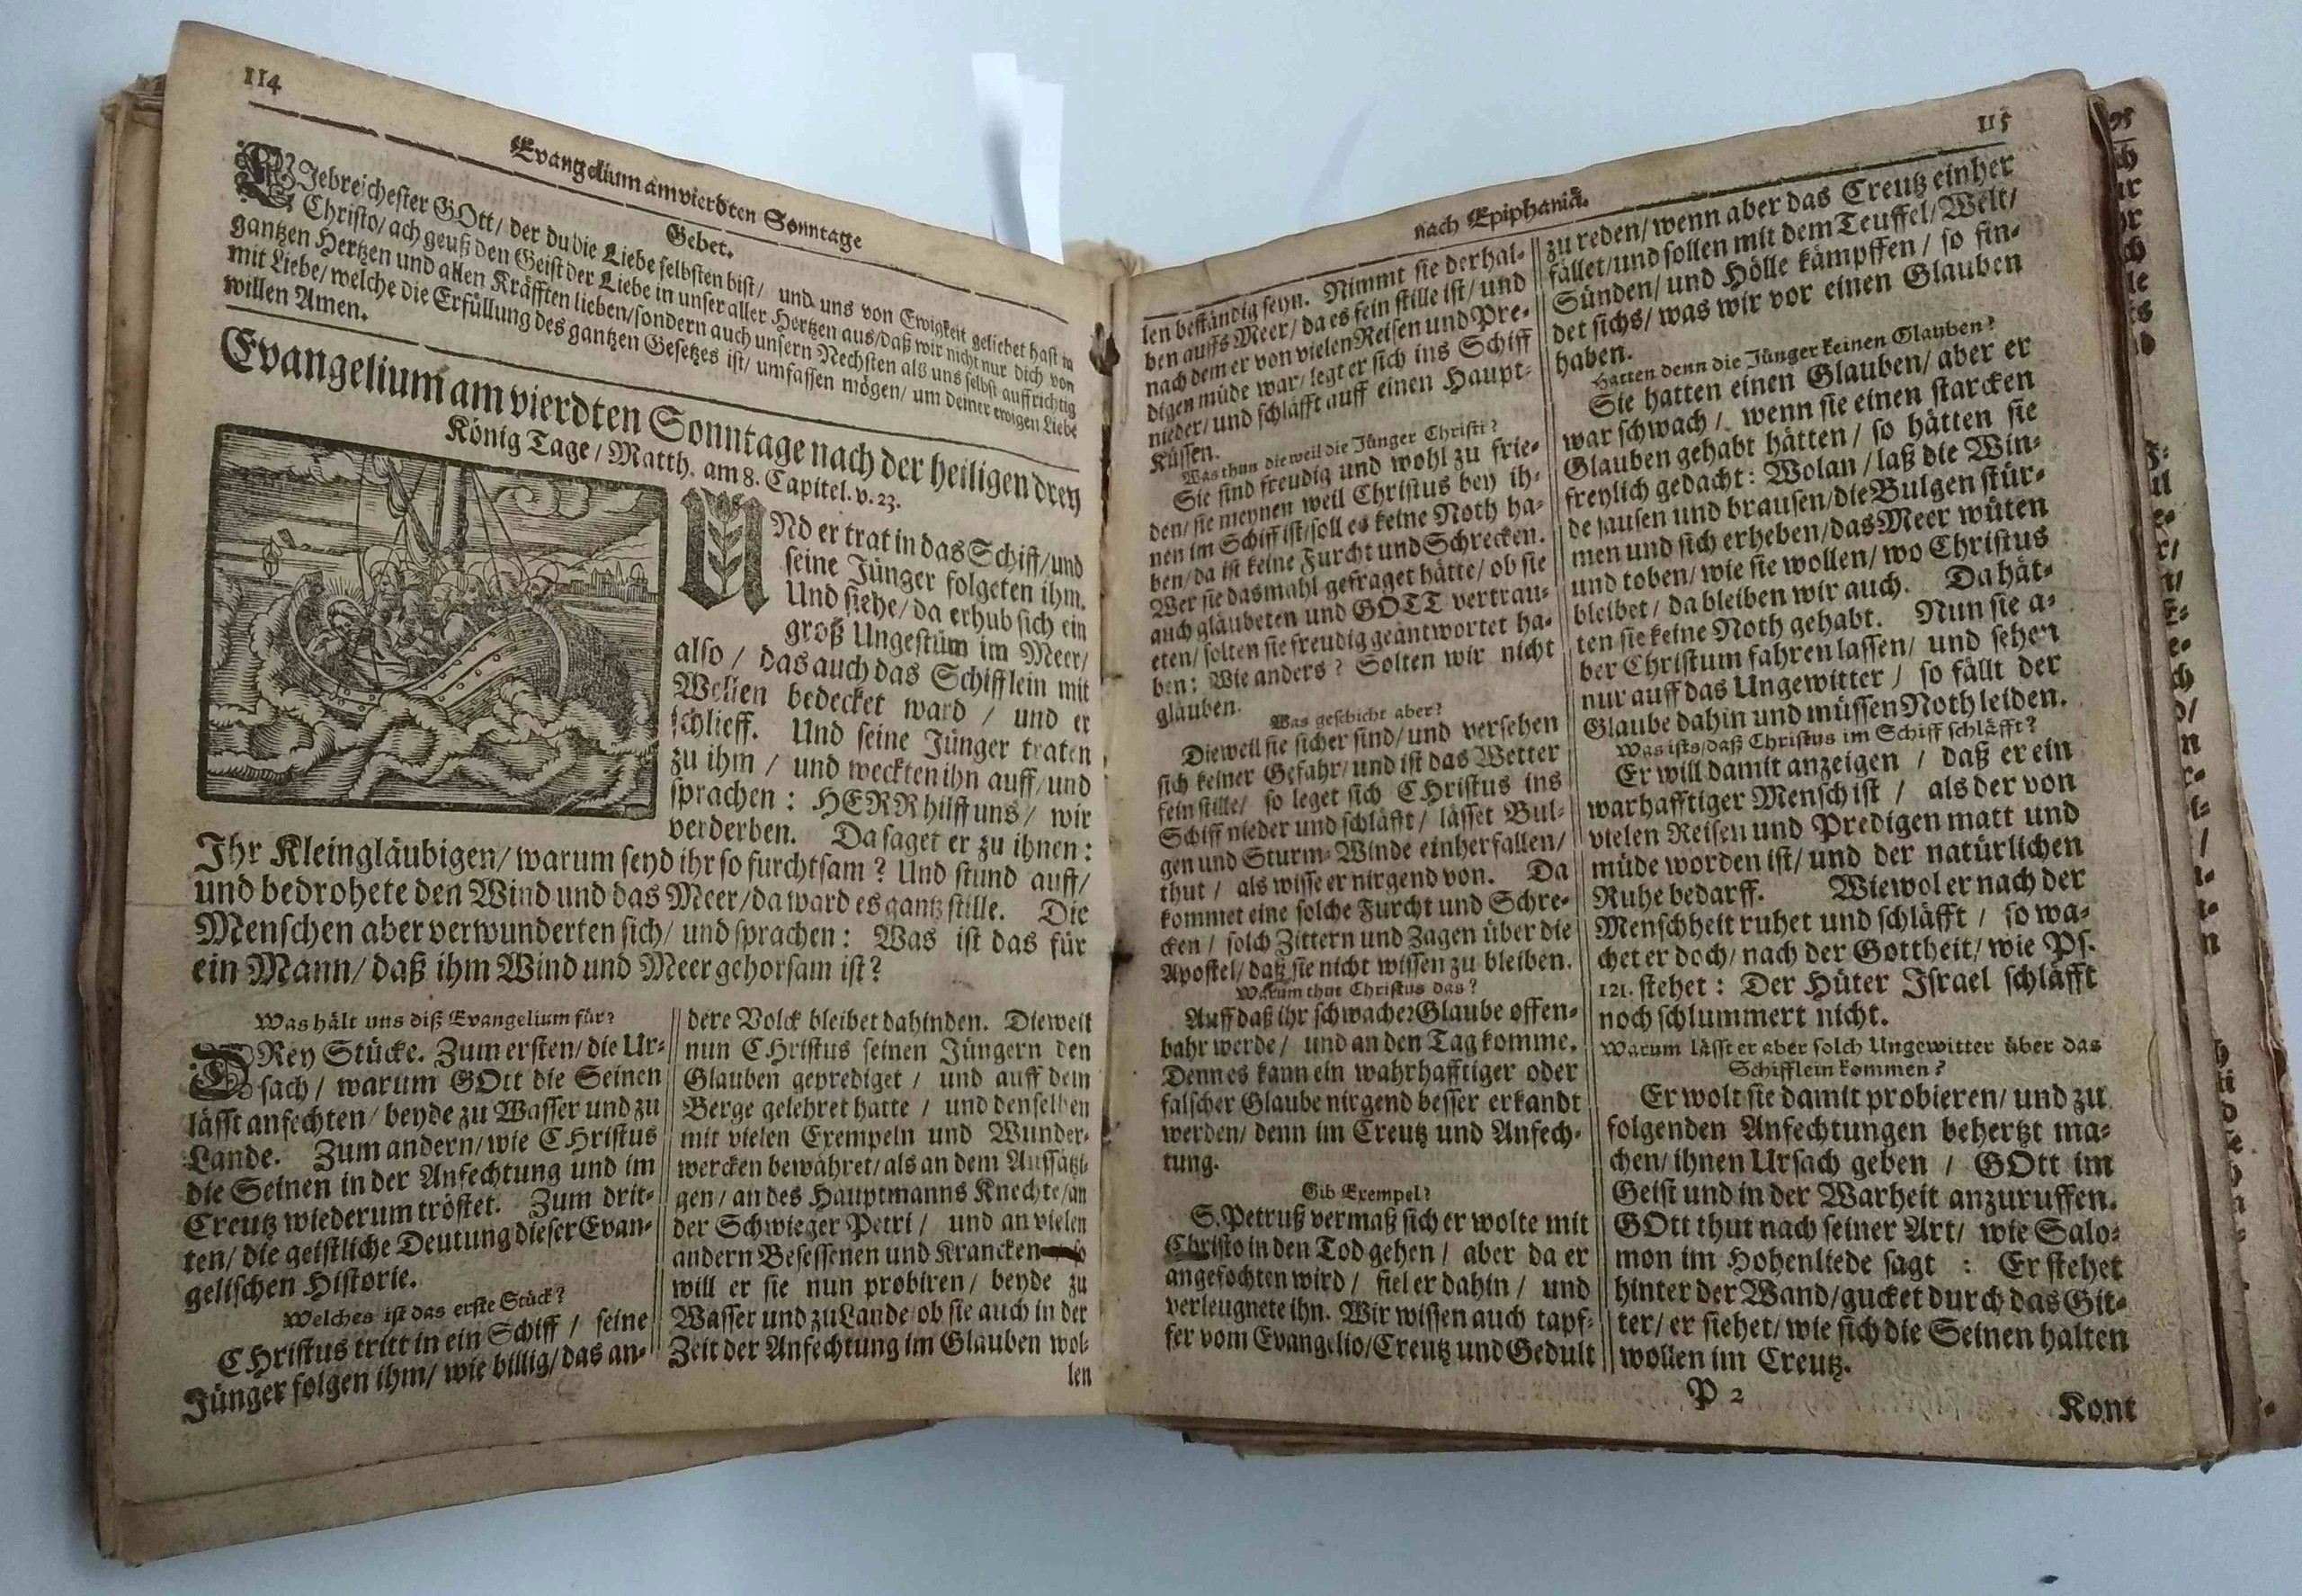 114
Evangelium am vierdten Sonntage
Gebet.
LIebreichester GOtt/ der du die Liebe selbsten bist/ und uns von Ewigkeit geliebet hast in
Christo/ ach geuß den Geist der Liebe in unser aller Hertzen aus/ daß wir nicht nur dich von
gantzen Hertzen und allen Kräfften lieben/ sondern auch unsern Nechsten als uns selbst auffrichtig
mit Liebe/ welche die Erfüllung des gantzen Gesetzes ist/ umfassen mögen/ um deiner ewigen Liebe
willen Amen.
Evangelium am vierdten Sonntage nach der heiligen drey
König Tage/ Matth. am 8. Capitel. v. 23.
UNd er trat in das Schiff/ und
seine Jünger folgeten ihm.
Und siehe/ da erhub sich ein
groß Ungestüm im Meer/
also / das auch das Schifflein mit
Wellen bedecket ward / und er
schlieff. Und seine Jünger traten
zu ihm / und weckten ihn auff/ und
sprachen : HERR hilff uns/ wir
verderben. Da saget er zu ihnen:
Ihr Kleingläubigen/ warum seyd ihr so furchtsam? Und stund auff/
und bedrohete den Wind und das Meer/ da ward es gantz stille. Die
Menschen aber verwunderten sich/ und sprachen: Was ist das für
ein Mann/ daß ihm Wind und Meer gehorsam ist?
Was hält uns diß Evangelium für?
DRey Stücke. Zum ersten/ die Ur-
sach / warum GOtt die Seinen
lässt anfechten/ beyde zu Wasser und zu
Lande. Zum andern/ wie CHristus
die Seinen in der Anfechtung und im
Creutz wiederum tröstet. Zum drit-
ten/ die geistliche Deutung dieser Evan-
gelischen Historie.
Welches ist das erste Stück?
CHristus tritt in ein Schiff / seine
Jünger folgen ihm/ wie billig/ das an-
dere Volck bleibet dahinden. Dieweil
nun CHristus seinen Jüngern den
Glauben geprediget / und auff dem
Berge gelehret hatte / und denselben
mit vielen Exempeln und Wunder-
wercken bewähret/ als an dem Aussätzi-
gen/ an des Hauptmanns Knechte/ an
der Schwieger Petri / und an vielen
andern Besessenen und Krancken so
will er sie nun probiren/ beyde zu
Wasser und zu Lande/ ob sie auch in der
Zeit der Anfechtung im Glauben wol-
len
115
nach Epiphaniä.
len beständig seyn. Nimmt sie derhal-
ben auffs Meer/ da es fein stille ist/ und
nach dem er von vielen Reisen und Pre-
digen müde war/ legt er sich ins Schiff
nieder/ und schläfft auff einen Haupt-
Küssen.
Was thun dieweil die Jünger Christi?
Sie sind freudig und wohl zu frie-
den/ sie meynen weil Christus bey ih-
nen im Schiff ist/ soll es keine Noth ha-
ben/ da ist keine Furcht und Schrecken.
Wer sie dasmahl gefraget hätte/ ob sie
auch gläubeten und GOTT vertrau-
eten/ solten sie freudig geantwortet ha-
ben: Wie anders? Solten wir nicht
gläuben.
Was geschicht aber?
Dieweil sie sicher sind/ und versehen
sich keiner Gefahr/ und ist das Wetter
fein stille/ so leget sich CHristus ins
Schiff nieder und schläfft/ lässet Bul-
gen und Sturm-Winde einherfallen/
thut / als wisse er nirgend von. Da
kommet eine solche Furcht und Schre-
cken / solch Zittern und Zagen über die
Apostel/ daß sie nicht wissen zu bleiben.
Warum thut Christus das?
Auff daß ihr schwacher Glaube offen-
bahr werde/ und an den Tag komme.
Denn es kann ein wahrhafftiger oder
falscher Glaube nirgend besser erkandt
werden/ denn im Creutz und Anfech-
tung.
Gib Exempel?
S. Petruß vermaß sich er wolte mit
Christo in den Tod gehen / aber da er
angefochten wird / fiel er dahin / und
verleugnete ihn. Wir wissen auch tapf-
fer vom Evangelio/ Creutz und Gedult
zu reden/ wenn aber das Creutz einher
fället/ und sollen mit dem Teuffel/ Welt/
Sünden/ und Hölle kämpffen / so fin-
det sichs/ was wir vor einen Glauben
haben.
Hatten denn die Jünger keinen Glauben?
Sie hatten einen Glauben/ aber er
war schwach / wenn sie einen starcken
Glauben gehabt hätten / so hätten sie
freylich gedacht: Wolan / laß die Win-
de sausen und brausen/ die Bulgen stür-
men und sich erheben/ das Meer wüten
und toben/ wie sie wollen/ wo Christus
bleibet / da bleiben wir auch. Da hät-
ten sie keine Noth gehabt. Nun sie a-
ber Christum fahren lassen/ und sehen
nur auff das Ungewitter / so fällt der
Glaube dahin und müssen Noth leiden.
Was ists/ daß Christus im Schiff schläfft?
Er will damit anzeigen / daß er ein
warhafftiger Mensch ist / als der von
vielen Reisen und Predigen matt und
müde worden ist/ und der natürlichen
Ruhe bedarff. Wiewol er nach der
Menschheit ruhet und schläfft / so wa-
chet er doch/ nach der Gottheit/ wie Ps.
121. stehet : Der Hüter Israel schläfft
noch schlummert nicht.
Warum lässt er aber solch Ungewitter über das
Schifflein kommen?
Er wolt sie damit probieren/ und zu
folgenden Anfechtungen behertzt ma-
chen/ ihnen Ursach geben / GOtt im
Geist und in der Warheit anzuruffen.
GOtt thut nach seiner Art/ wie Salo-
mon im Hohenliede sagt : Er stehet
hinter der Wand/ gucket durch das Git-
ter/ er siehet/ wie sich die Seinen halten
wollen im Creutz.
P 2
Kont